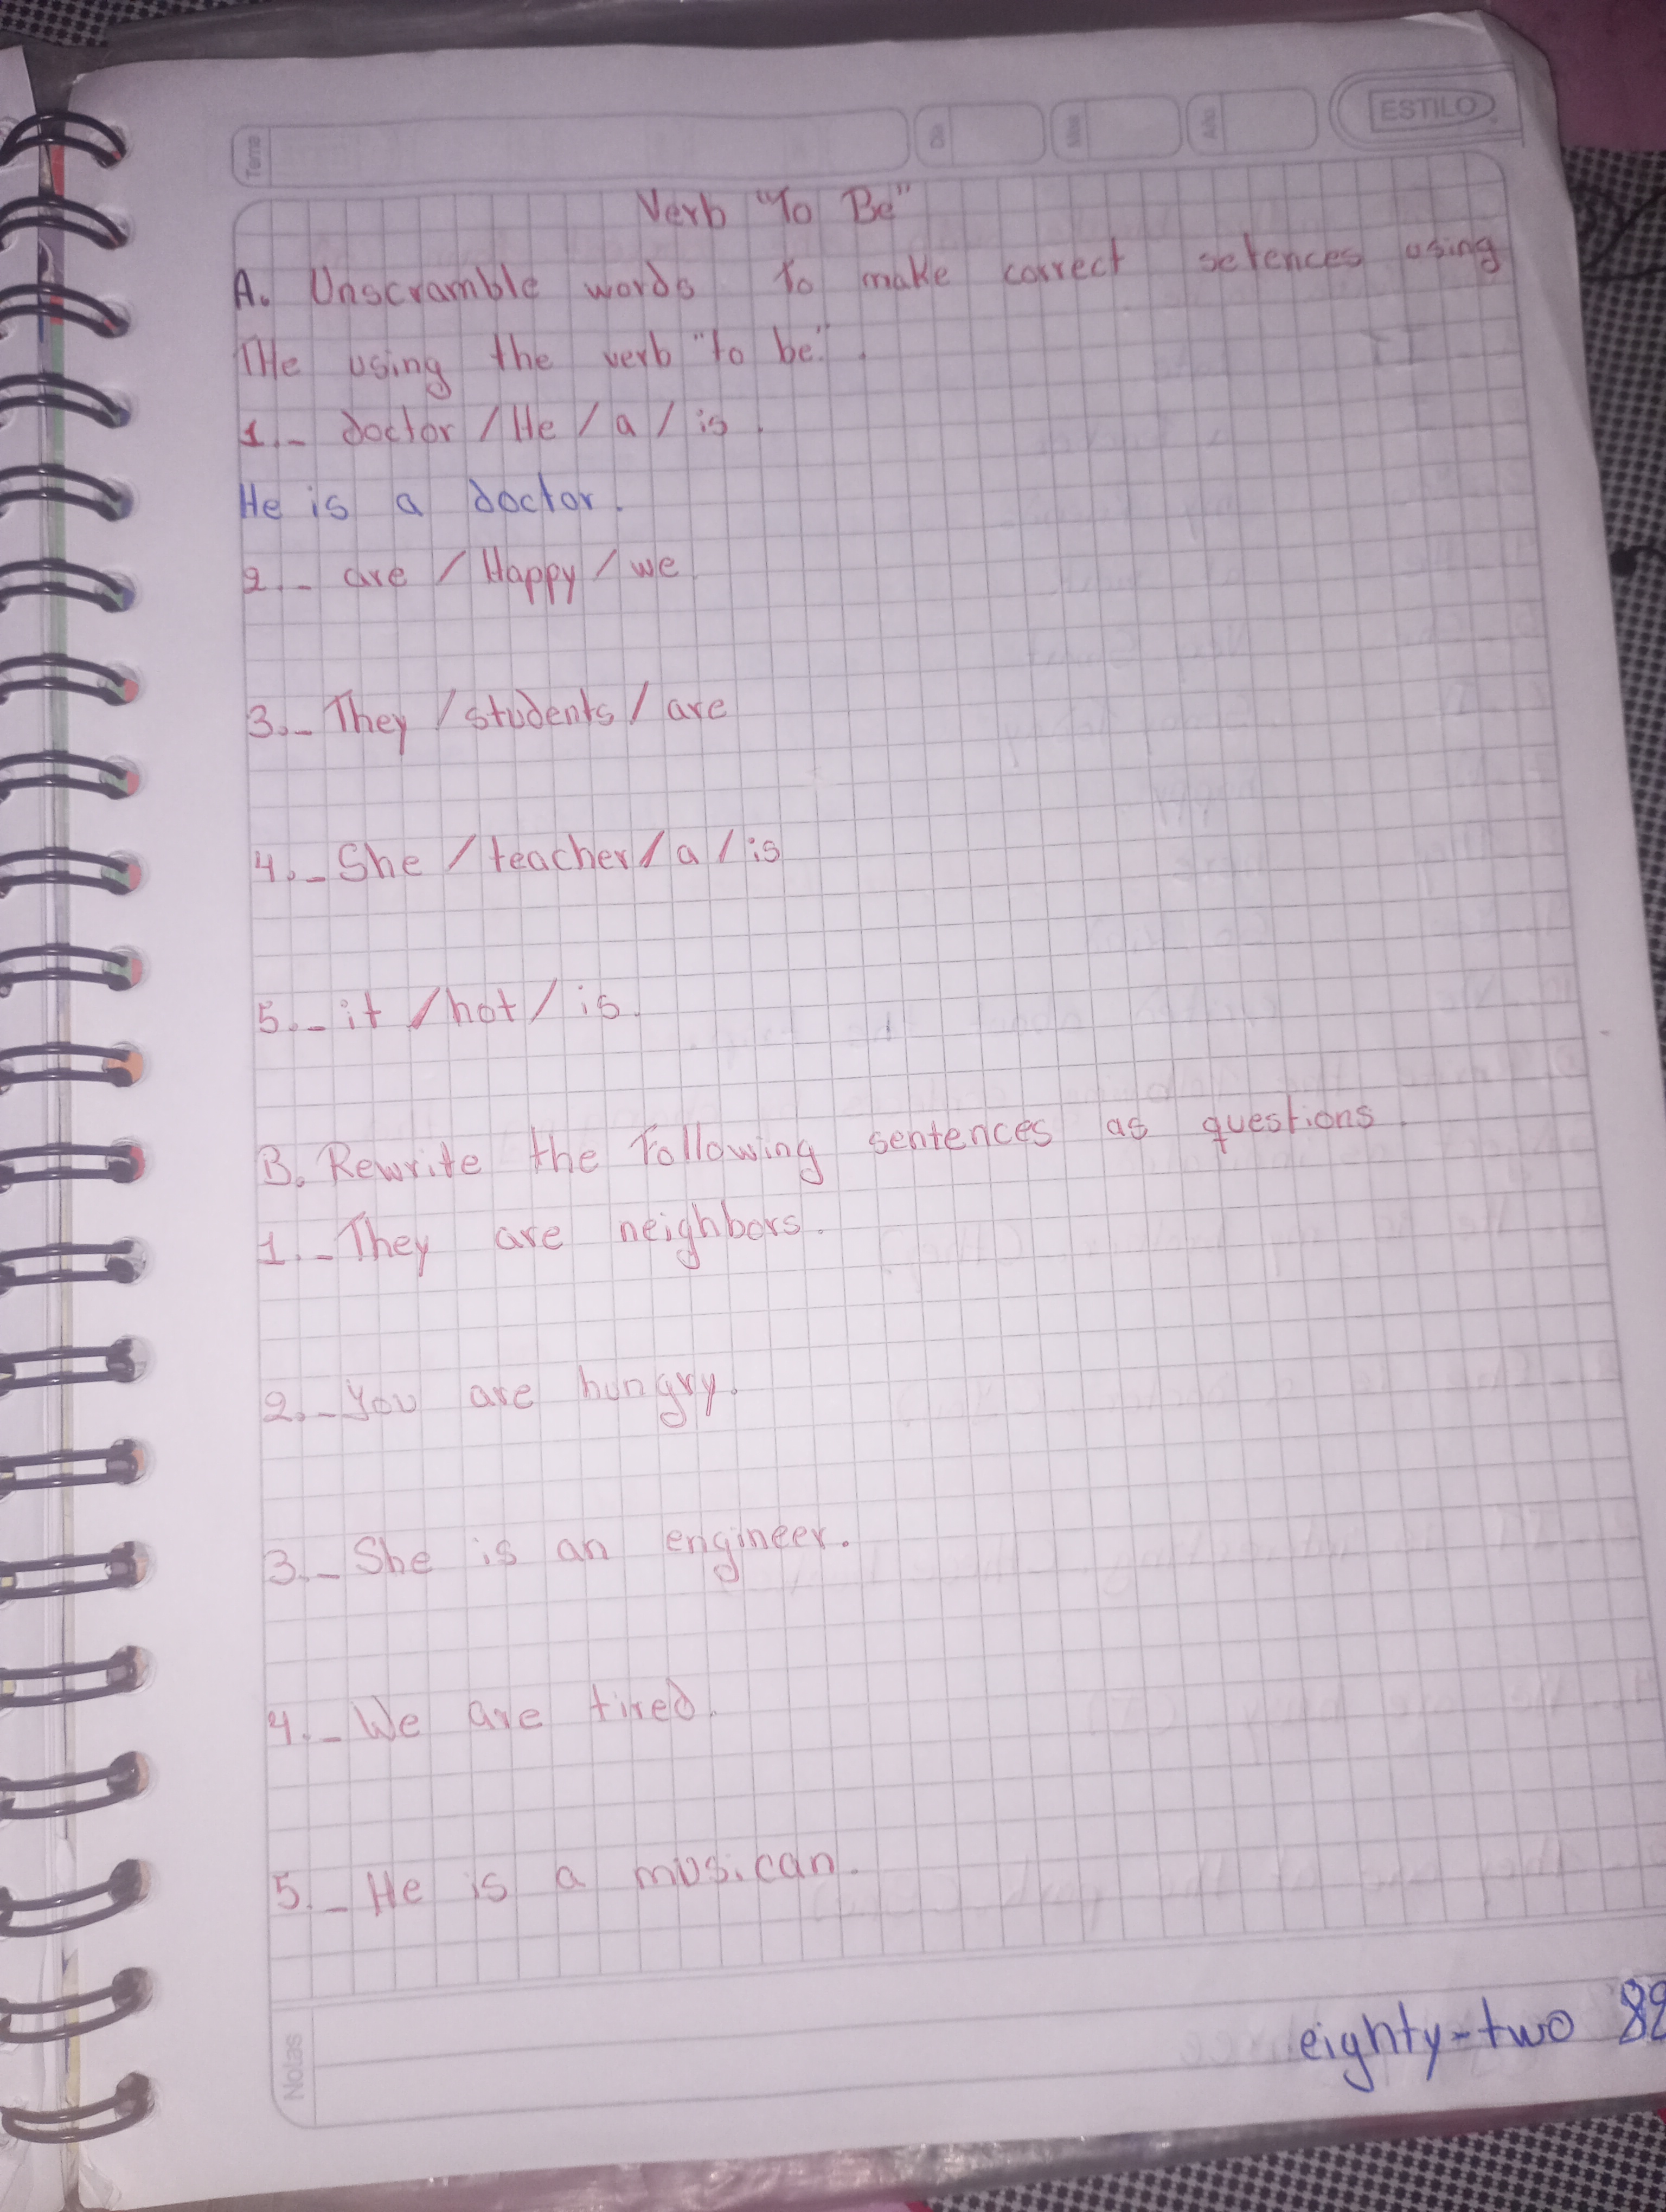 Tema Día Mes Año ESTILO
Verb "To Be"
A. Unscramble words to make correct setences using
THe using the verb "to be".
1.- doctor / He / a / is.
He is a doctor.
2.- are / Happy / we
3.- They / students / are
4.- She / teacher / a / is
5.- it / hot / is.
B. Rewrite the Following sentences as questions.
1.- They are neighbors.
2.- You are hungry.
3.- She is an engineer.
4.- We are tired.
5.- He is a musican.
Notas
eighty-two 82